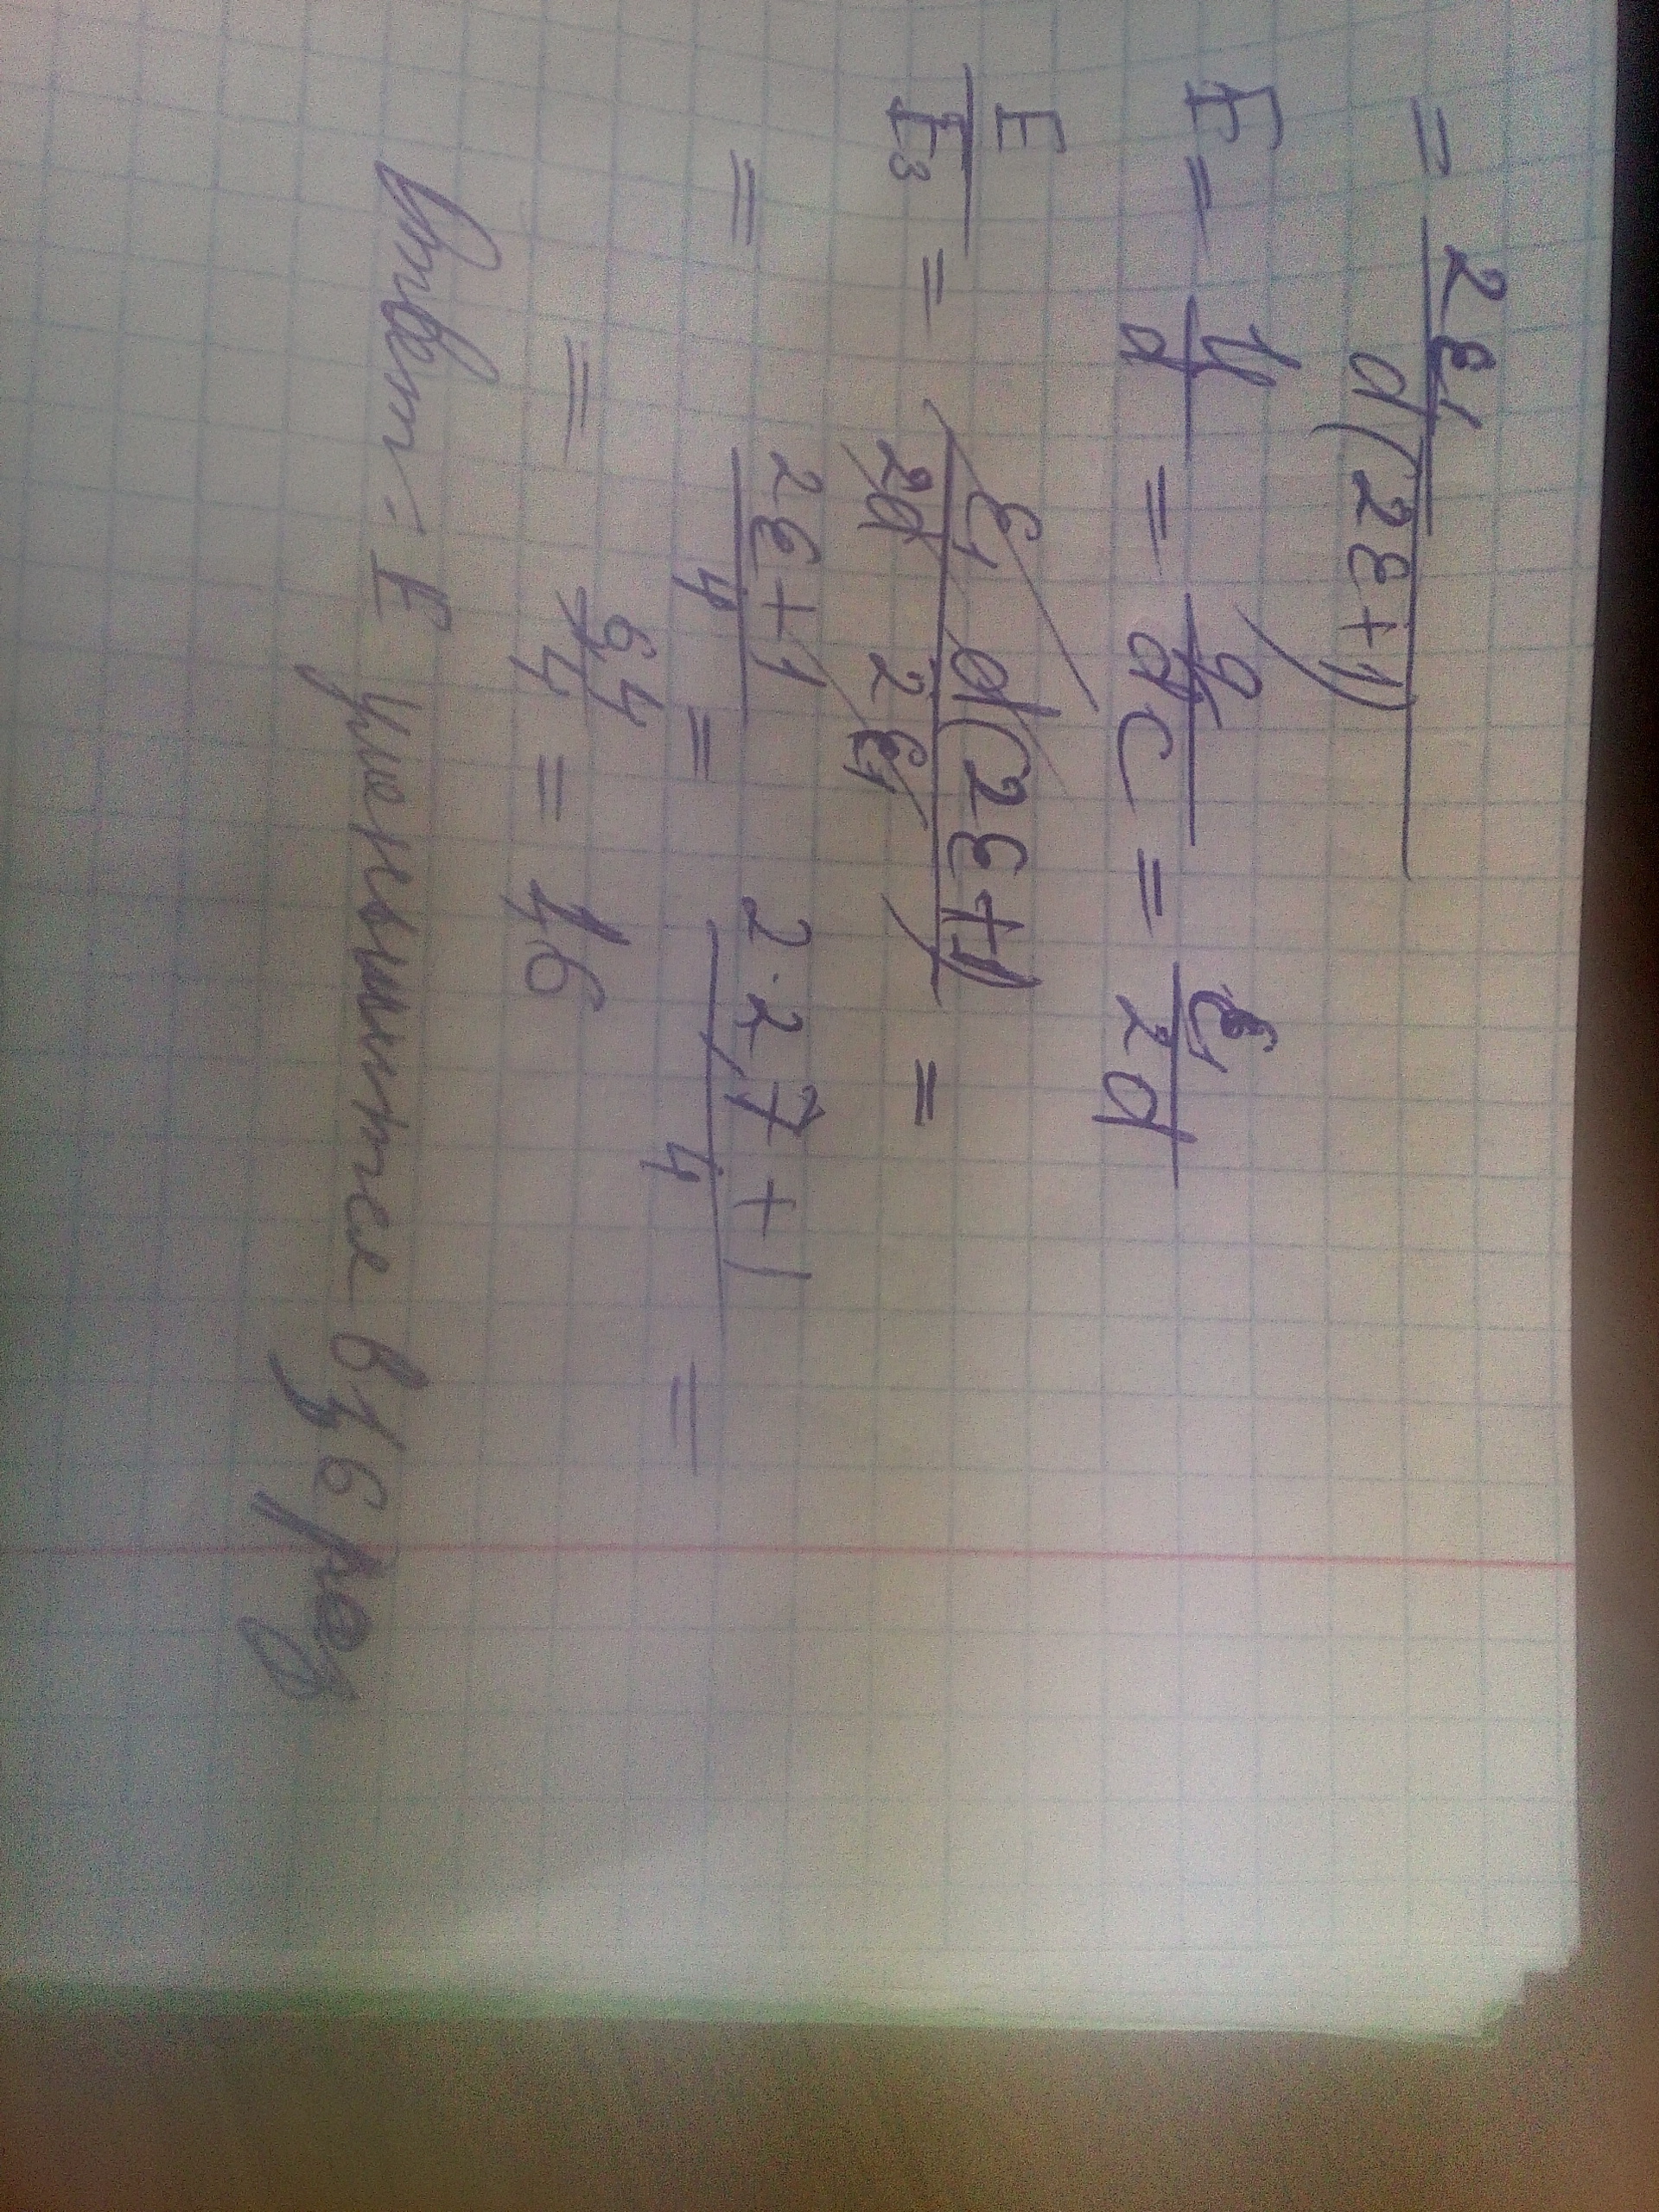 = 2ℰ₁ / d(2ε+1)
E = U/d = q/dC = ℰ₁/2d
E/E₃ = ℰ₁ d(2ε+1) / 2d 2ℰ₁ =
= 2ε+1 / 4 = 2·2,7+1 / 4 =
= 6,4/4 = 1,6
Ответ: E уменьшится в 1,6 раз